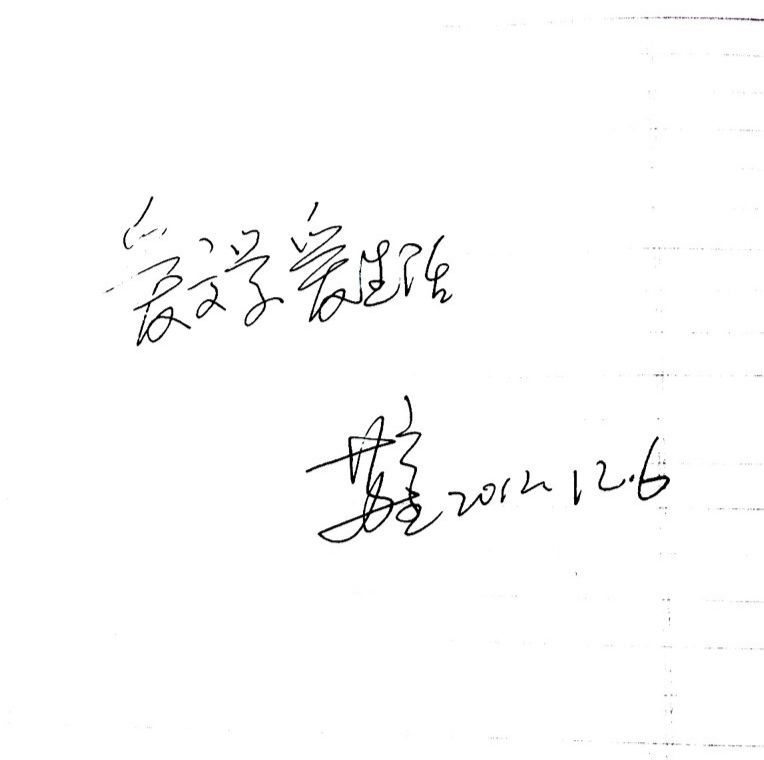 爱文学爱生活
苏童 2012.12.6